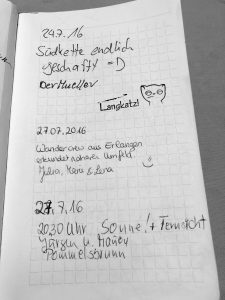 24.7.16
Südkette endlich
geschafft =D
DerMueller
Langkatz!
27.07.2016
Wandercrew aus Erlangen
erkundet näheres Umfeld
Julia, & Lena
27.7.16
20.30 Uhr Sonne! + Fernsicht
Jürgen u.
Pommelsbrunn